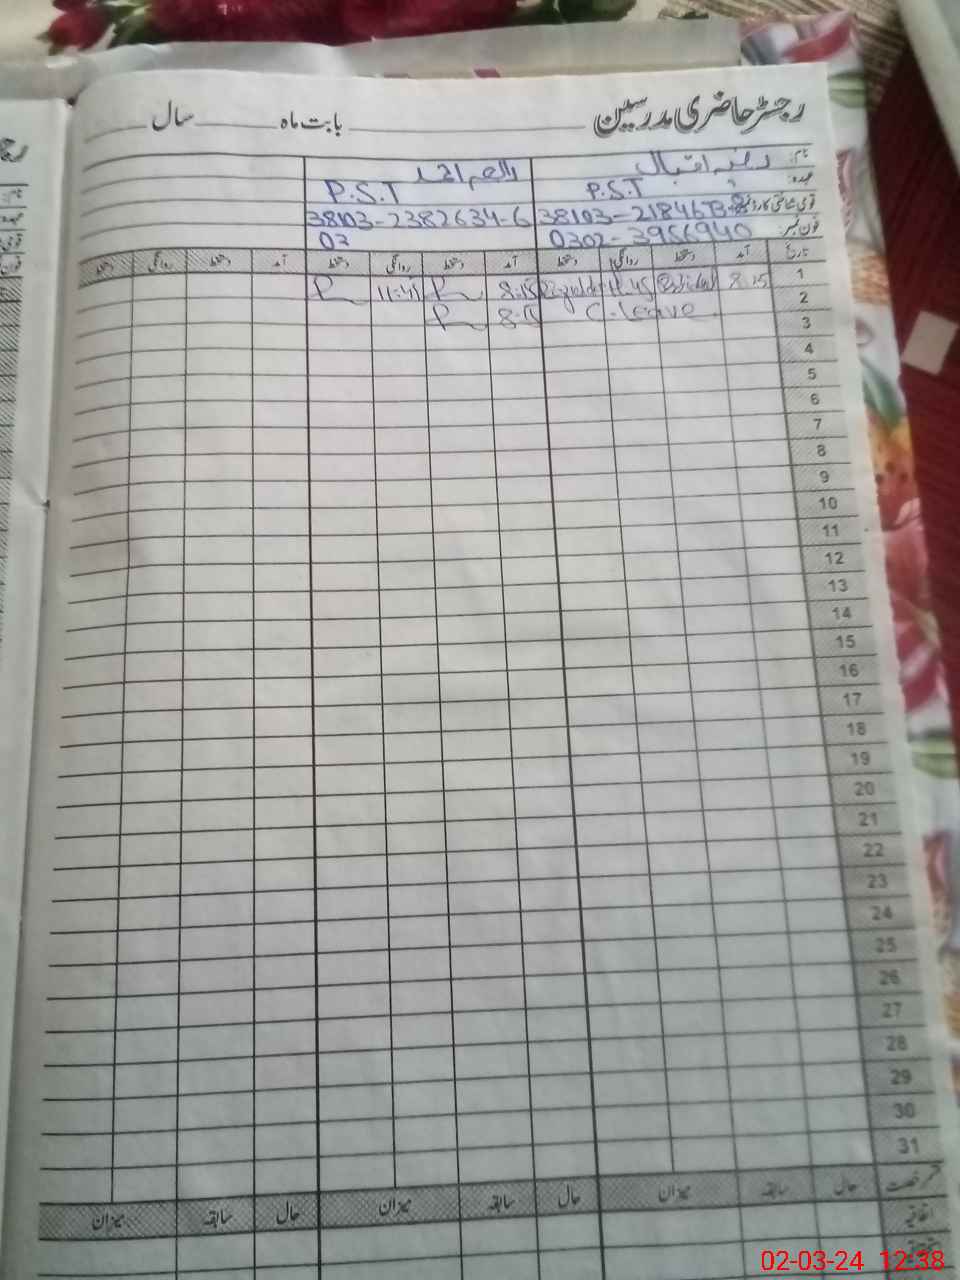 رجسٹر حاضری مدرسین ــــــ بابت ماہ ــــــ سال ــــــ
نام: اقبال
عہدہ: P.S.T P.S.T
قومی شناختی کارڈ 38103-2382634-6
فون نمبر: 0302-3956940 03
تاریخ آمد دستخط روانگی دستخط آمد دستخط روانگی دستخط آمد دستخط روانگی دستخط
1 8:15 11:45 8:15 11:45
2 C. leave
3
4
5
6
7
8
9
10
11
12
13
14
15
16
17
18
19
20
21
22
23
24
25
26
27
28
29
30
31
رخصت حال سابقہ میزان حال سابقہ میزان حال سابقہ میزان
اتفاقیہ
02-03-24 12:38